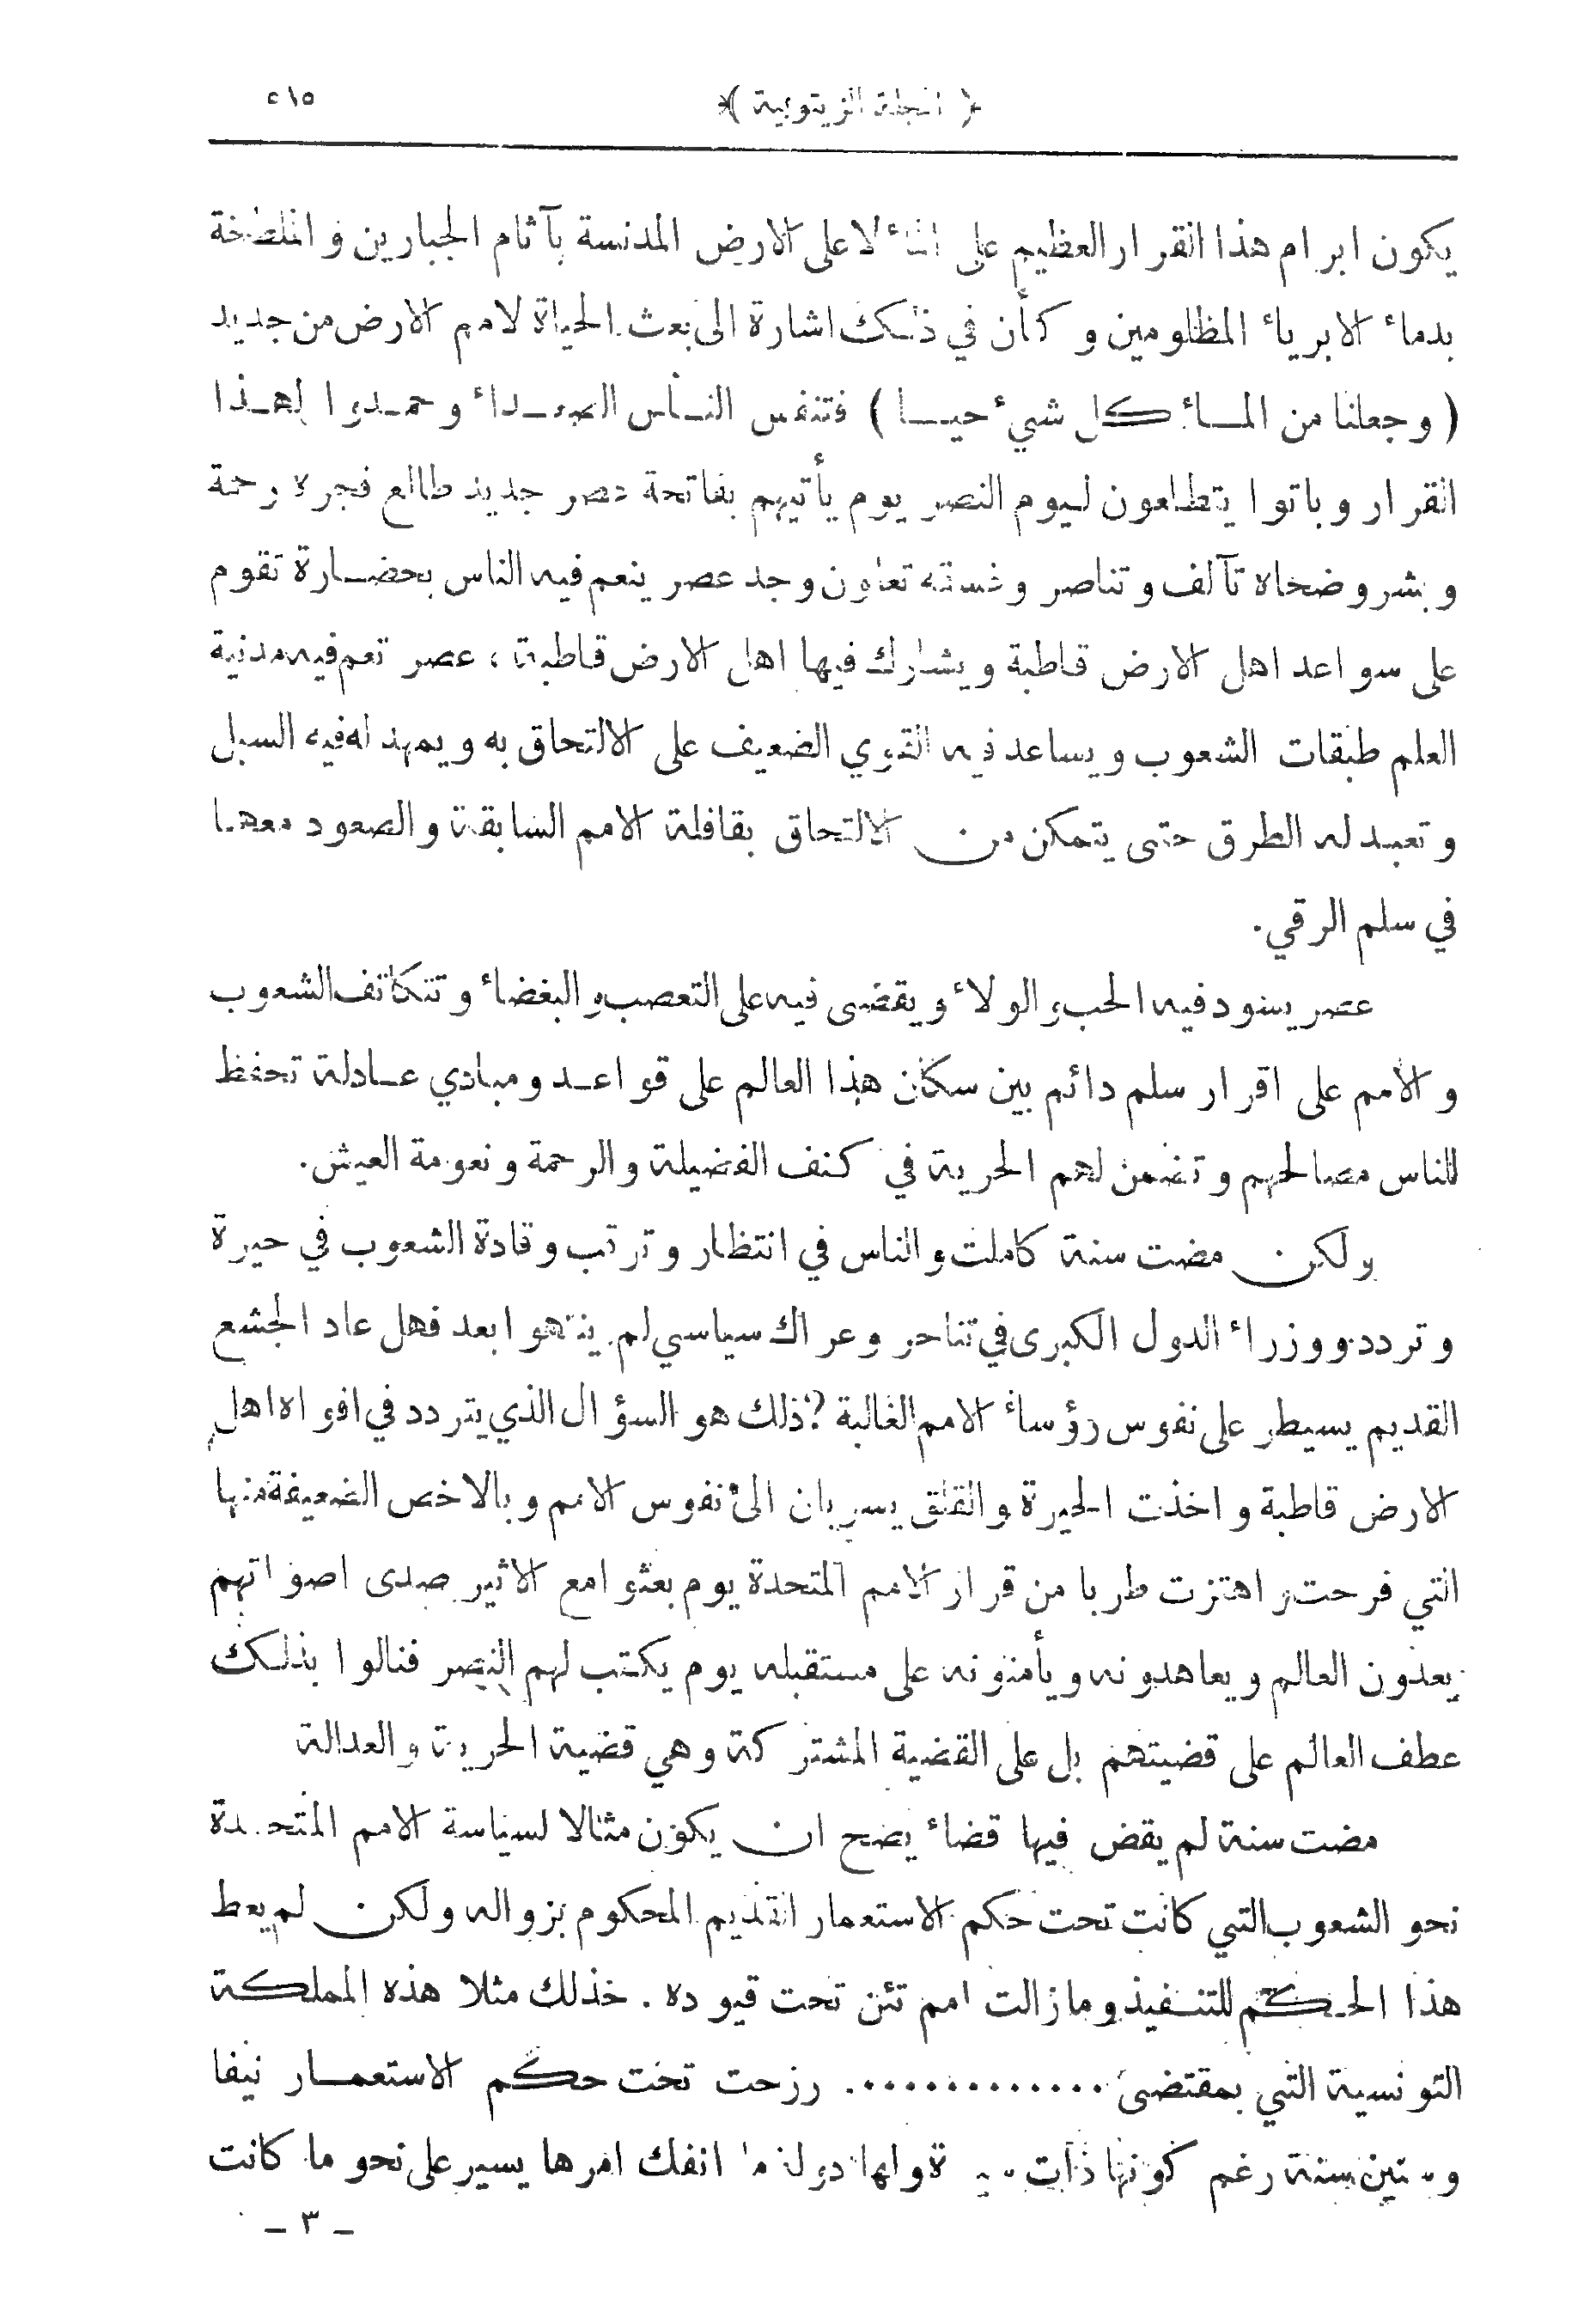 ﴿ المجلة الزيتونية ﴾ ٥١٥
يكون ابرام هذا القرار العظيم على الماء لا على الارض المدنسة بآثام الجبارين والملطخة
بدماء الابرياء المظلومين وكأن في ذلك اشارة الى بعث الحياة لامم الارض من جديد
( وجعلنا من الماء كل شيء حيا ) فتنفس الناس الصعداء وحمدوا لهذا
القرار وباتوا يتطلعون ليوم النصر يوم يأتيهم بفاتحة عصر جديد طالع فجره رحمة
وبشر وضحاه تآلف وتناصر وغسقه تعاون وجد عصر ينعم فيه الناس بحضارة تقوم
على سواعد اهل الارض قاطبة ويشارك فيها اهل الارض قاطبة ، عصر تعم فيه مدنية
العلم طبقات الشعوب ويساعد فيه القوي الضعيف على الالتحاق به ويمهد له فيه السبل
وتعبد له الطرق حتى يتمكن من الالتحاق بقافلة الامم السابقة والصعود معها
في سلم الرقي.
عصر يسود فيه الحب والولاء ويقضى فيه على التعصب والبغضاء وتتكاتف الشعوب
والامم على اقرار سلم دائم بين سكان هذا العالم على قواعد ومبادي عادلة تحفظ
للناس مصالحهم وتضمن لهم الحرية في كنف الفضيلة والرحمة ونعومة العيش.
ولكن مضت سنة كاملة والناس في انتظار وترقب وقادة الشعوب في حيرة
وتردد ووزراء الدول الكبرى في تناحر وعراك سياسي لم ينتهوا بعد فهل عاد الجشع
القديم يسيطر على نفوس رؤساء الامم الغالبة ؟ ذلك هو السؤال الذي يتردد في افواه اهل
الارض قاطبة واخذت الحيرة والقلق يسريان الى نفوس الامم وبالاخص الضعيفة منها
التي فرحت واهتزت طربا من قرار الامم المتحدة يوم بعثوا مع الاثير صدى اصواتهم
يعدون العالم ويعاهدونه ويأمنونه على مستقبله يوم يكتب لهم النصر فنالوا بذلك
عطف العالم على قضيتهم بل على القضية المشتركة وهي قضية الحرية والعدالة
مضت سنة لم يقض فيها قضاء يصح ان يكون مثالا لسياسة الامم المتحدة
نحو الشعوب التي كانت تحت حكم الاستعمار القديم المحكوم بزواله ولكن لم يعط
هذا الحكم للتنفيذ وما زالت امم تئن تحت قيوده . خذلك مثلا هذه المملكة
التونسية التي بمقتضى ............. رزحت تحت حكم الاستعمار نيفا
وستين سنة رغم كونها ذات ولها دولة ما انفك امرها يسير على نحو ما كانت
– ٣ –